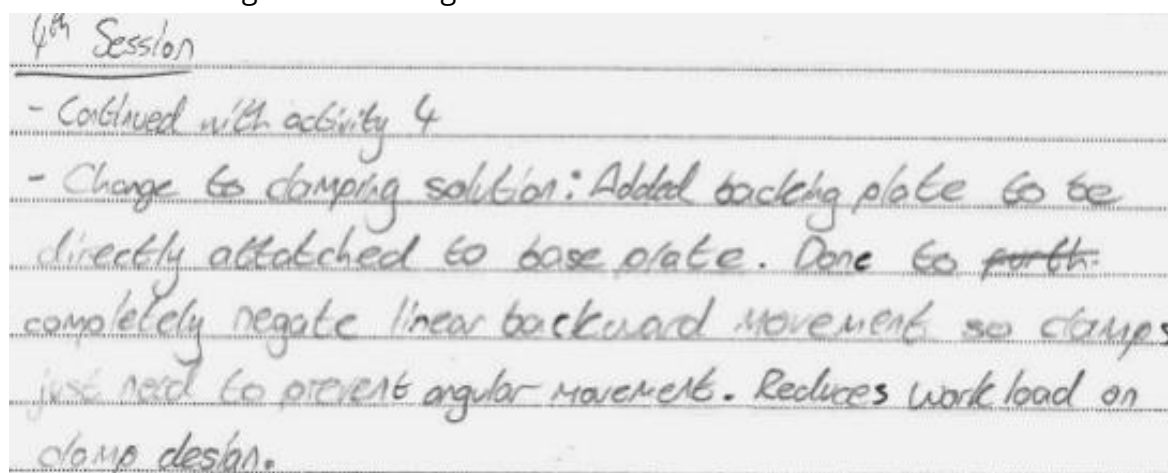 4th Session
- Continued with activity 4
- Change to clamping solution: Added backing plate to be
directly attatched to base plate. Done to
completely negate linear backward movement so clamps
just need to prevent angular movement. Reduces work load on
clamp design.